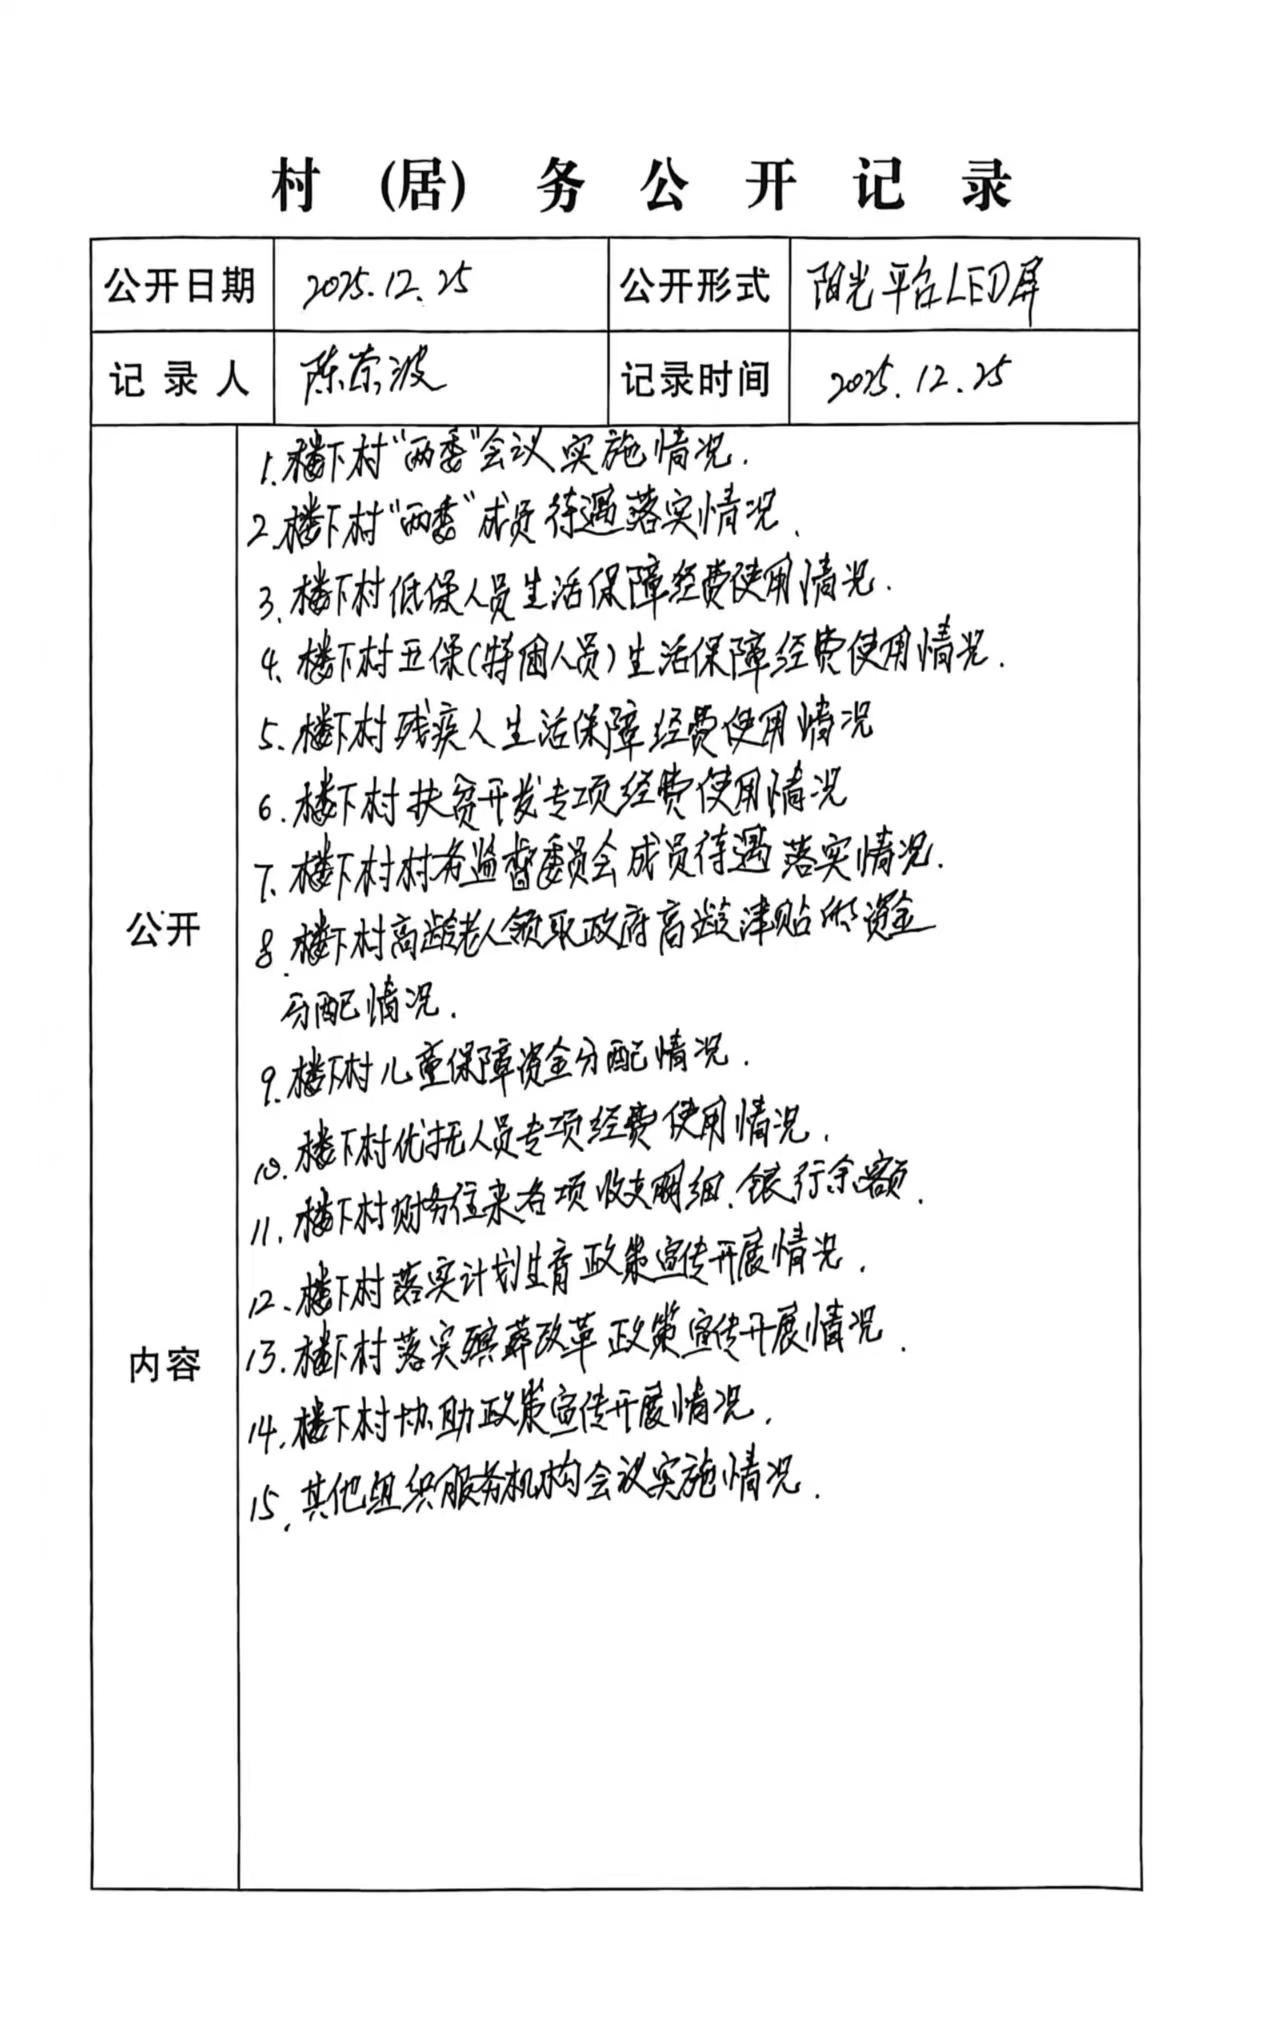 村（居）务公开记录
公开日期 2025.12.25 公开形式 阳光平台LED屏
记录人 陈荣波 记录时间 2025.12.25
公开内容
1.楼下村“两委”会议实施情况.
2.楼下村“两委”成员待遇落实情况.
3.楼下村低保人员生活保障经费使用情况.
4.楼下村五保(特困人员)生活保障经费使用情况.
5.楼下村残疾人生活保障经费使用情况
6.楼下村扶贫开发专项经费使用情况
7.楼下村村务监督委员会成员待遇落实情况.
8.楼下村高龄老人领取政府高龄津贴的资金
分配情况.
9.楼下村儿童保障资金分配情况.
10.楼下村优抚人员专项经费使用情况.
11.楼下村财务往来各项收支明细.银行余额.
12.楼下村落实计划生育政策宣传开展情况.
13.楼下村落实殡葬改革政策宣传开展情况.
14.楼下村协助政策宣传开展情况.
15.其他组织服务机构会议实施情况.